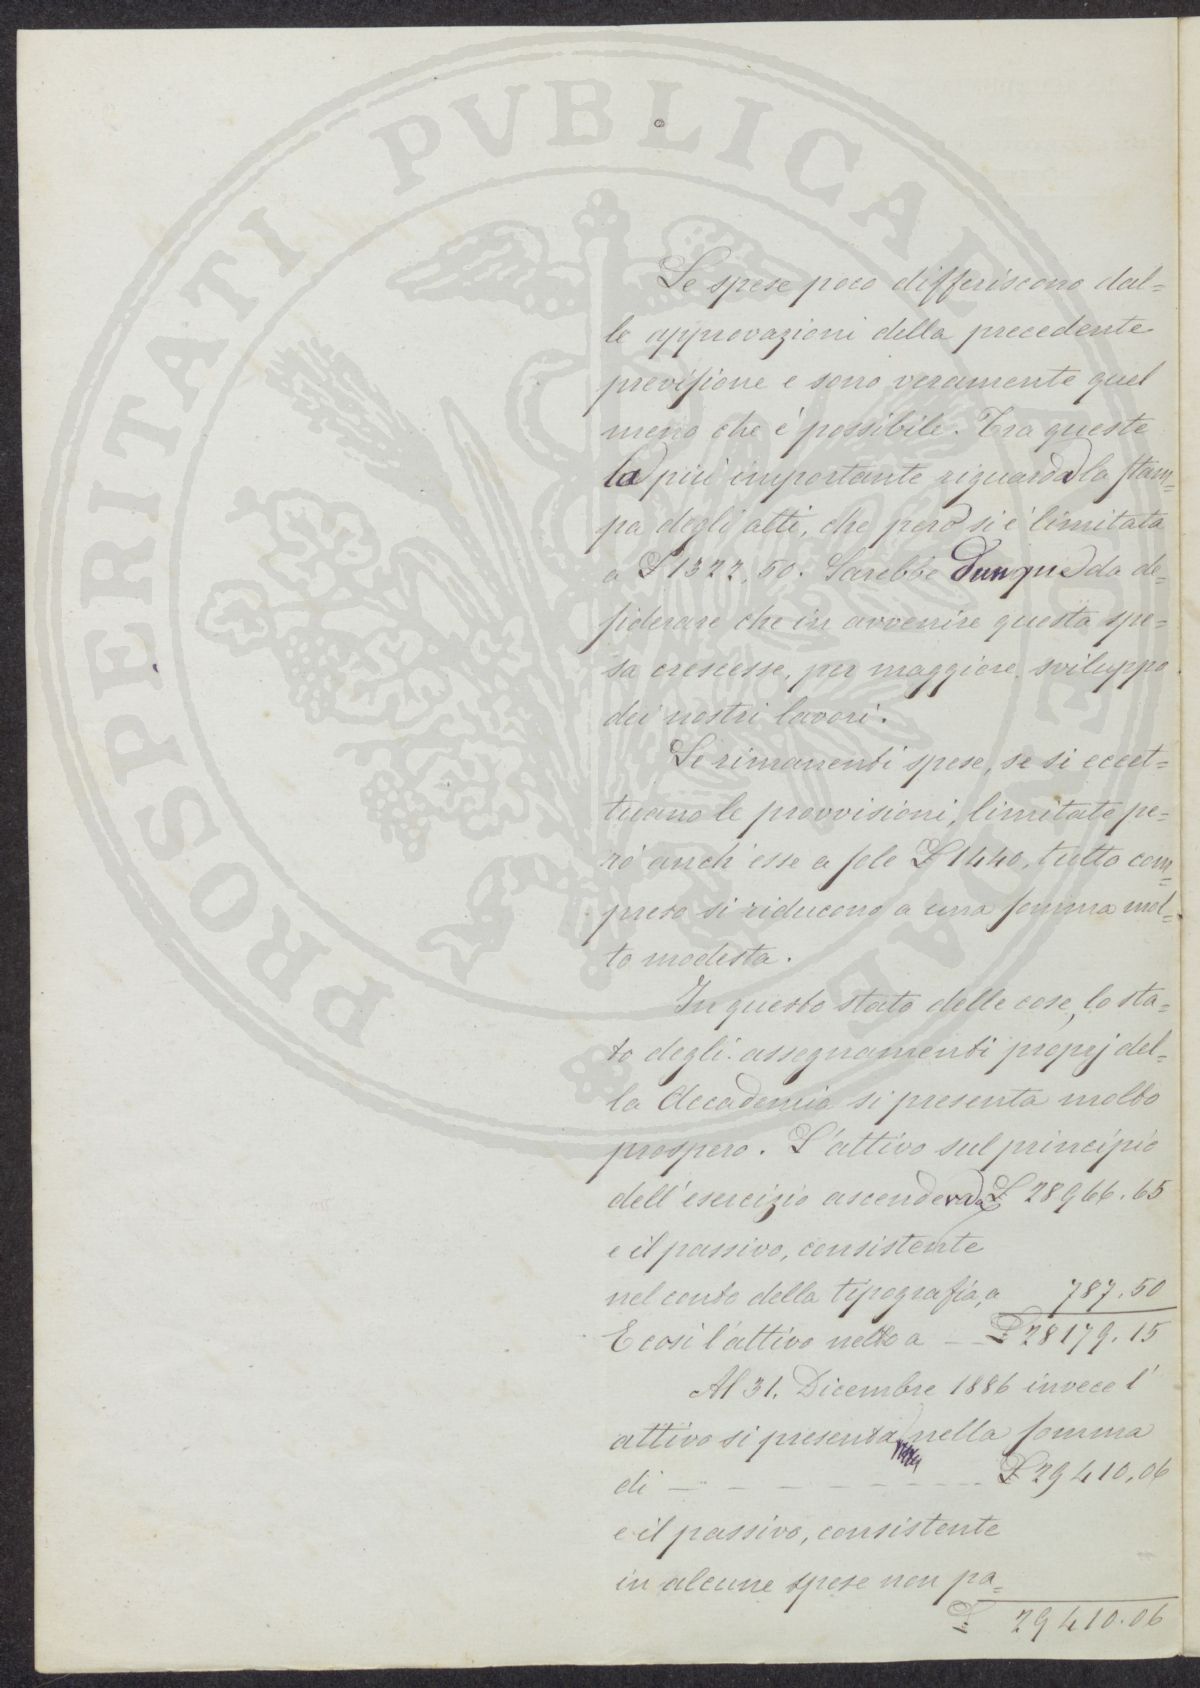 PROSPERITATI PVBLICAE AVGENDAE
Le spese poco differiscono dal=
le approvazioni della precedente
previsione e sono veramente quel
meno che è possibile. Tra queste
la più importante riguarda la stam=
pa degli atti, che però si è limitata
a £ 1322,50. Sarebbe dunque da de=
siderare che in avvenire questa spe=
sa crescesse, per maggiore sviluppo
dei nostri lavori.
Le rimanenti spese, se si eccet=
tuano le provvisioni, limitate pe=
rò anch'esse a sole £ 1440, tutto com=
preso si riducono a una somma mol=
to modesta.
In questo stato delle cose, lo sta=
to degli assegnamenti proprj del=
la Accademia si presenta molto
prospero. L'attivo sul principio
dell'esercizio ascendeva a £ 28966.65
e il passivo, consistente
nel conto della tipografia, a 787.50
E così l'attivo netto a — £ 28179.15
Al 31. Dicembre 1886 invece l'
attivo si presenta nella somma
di — — — — — — — £ 29410,06
e il passivo, consistente
in alcune spese non pa=
£ 29410.06